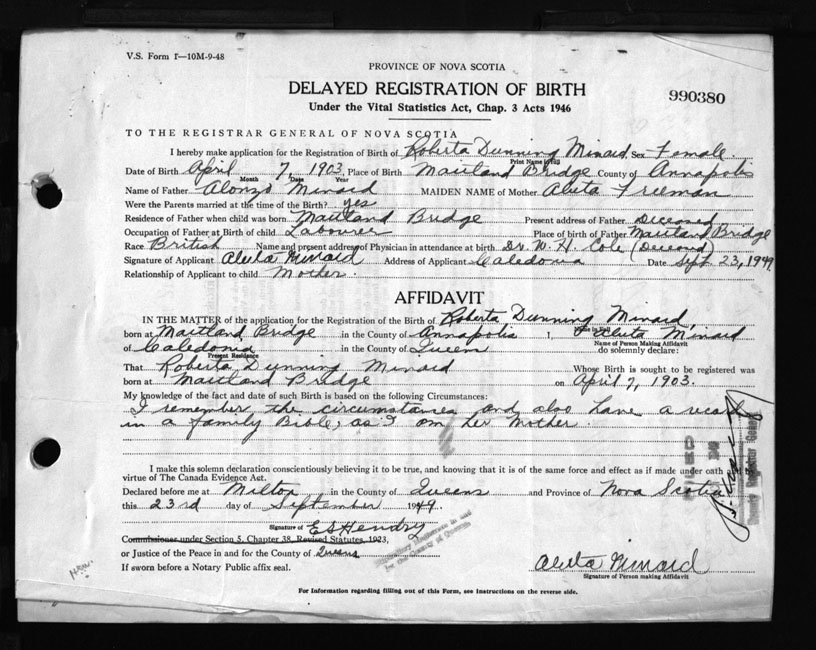 V.S. Form 1—10M-9-48
PROVINCE OF NOVA SCOTIA
DELAYED REGISTRATION OF BIRTH
990380
Under the Vital Statistics Act, Chap. 3 Acts 1946
TO THE REGISTRAR GENERAL OF NOVA SCOTIA
I hereby make application for the Registration of Birth of Roberta Dunning Minard Sex Female
Print Name in full
Date of Birth April 7, 1903, Place of Birth Maitland Bridge County of Annapolis
Month Date Year
Name of Father Alonzo Minard MAIDEN NAME of Mother Aluta Freeman
Were the Parents married at the time of Birth? yes
Residence of Father when child was born Maitland Bridge Present address of Father Deceased
Occupation of Father at Birth of child Labourer Place of birth of Father Maitland Bridge
Race British Name and present address of Physician in attendance at birth Dr. W. H. Cole (Deceased)
Signature of Applicant Aluta Minard Address of Applicant Caledonia Date Sept 23, 1949
Relationship of Applicant to child Mother.
AFFIDAVIT
IN THE MATTER of the application for the Registration of the Birth of Roberta Dunning Minard
born at Maitland Bridge in the County of Annapolis I, Aluta Minard
Name of Person Making Affidavit
of Caledonia in the County of Queens do solemnly declare:
Present Residence
That Roberta Dunning Minard Whose Birth is sought to be registered was
born at Maitland Bridge on April 7, 1903.
My knowledge of the fact and date of such Birth is based on the following Circumstances:
I remember the circumstances and also have a record
in a family Bible, as I am her Mother.
I make this solemn declaration conscientiously believing it to be true, and knowing that it is of the same force and effect as if made under oath and by
virtue of The Canada Evidence Act.
Declared before me at Milton in the County of Queens and Province of Nova Scotia
this 23rd day of September 1949.
Signature of E S Hendry
Commissioner under Section 5, Chapter 38, Revised Statutes, 1923,
or Justice of the Peace in and for the County of Queens
If sworn before a Notary Public affix seal.
Aluta Minard
Signature of Person making Affidavit
For Information regarding filling out of this Form, see Instructions on the reverse side.